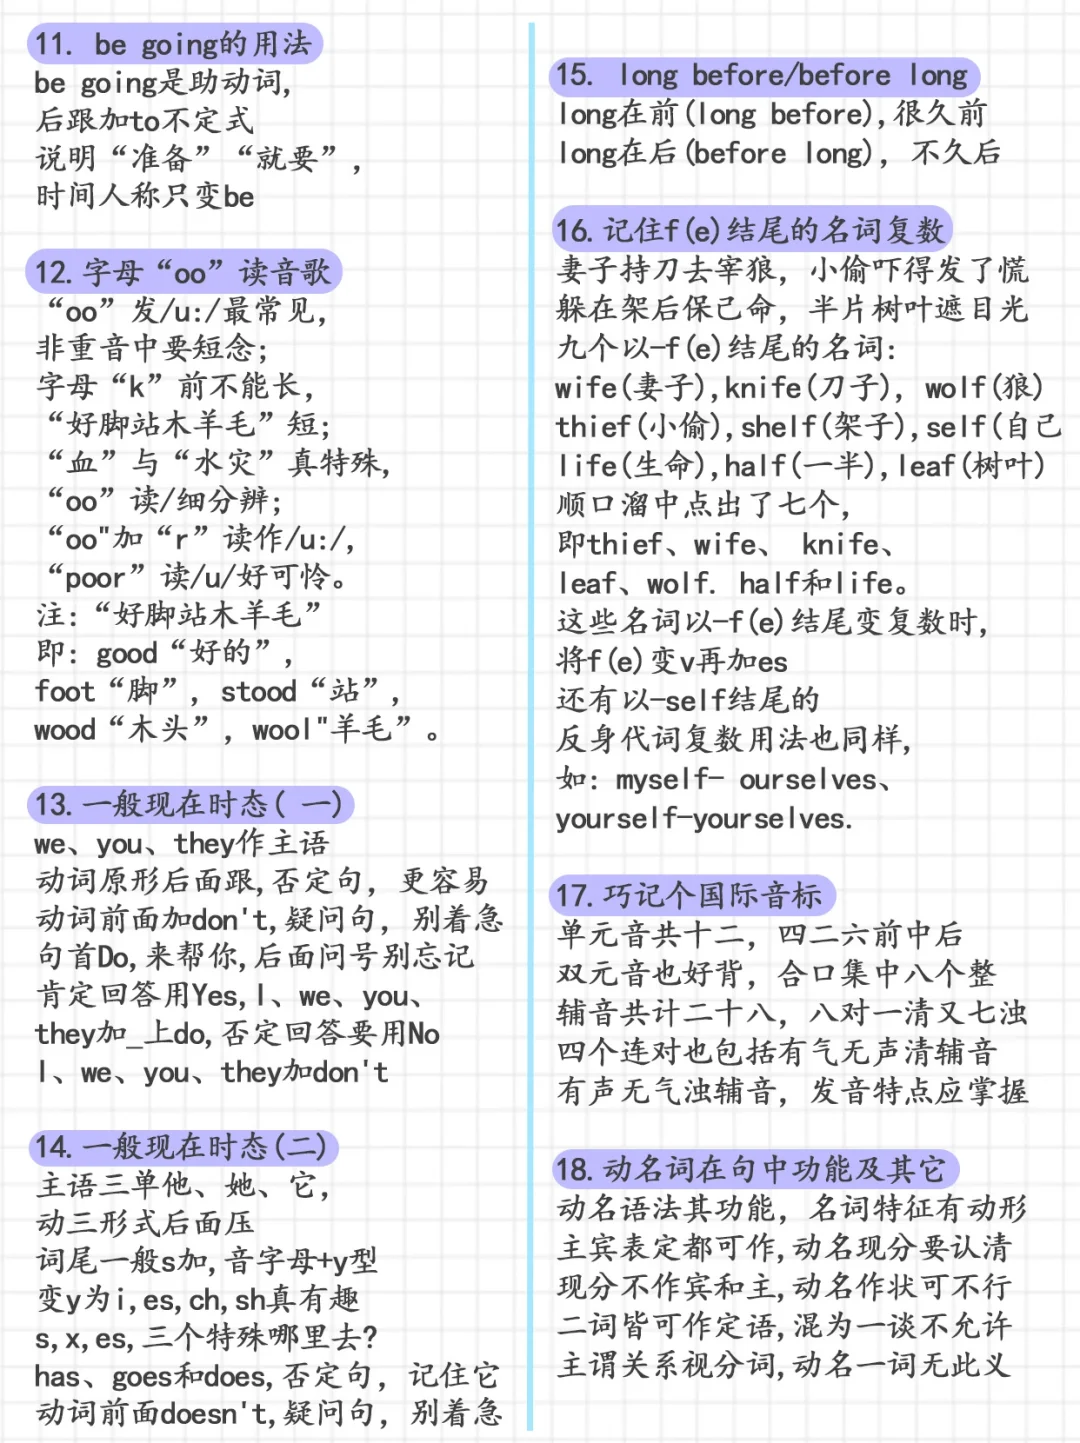 11. be going的用法
be going是助动词,
后跟加to不定式
说明“准备”“就要”,
时间人称只变be
12.字母“oo”读音歌
“oo”发/u:/最常见,
非重音中要短念;
字母“k”前不能长,
“好脚站木羊毛”短;
“血”与“水灾”真特殊,
“oo”读/细分辨;
“oo"加“r”读作/u:/,
“poor”读/u/好可怜。
注:“好脚站木羊毛”
即: good“好的”,
foot“脚”, stood“站”,
wood“木头”, wool"羊毛”。
13.一般现在时态( 一)
we、you、they作主语
动词原形后面跟,否定句, 更容易
动词前面加don't,疑问句, 别着急
句首Do,来帮你,后面问号别忘记
肯定回答用Yes,l、we、you、
they加_上do,否定回答要用No
l、we、you、they加don't
14.一般现在时态(二)
主语三单他、她、它,
动三形式后面压
词尾一般s加,音字母+y型
变y为i,es,ch,sh真有趣
s,x,es,三个特殊哪里去?
has、goes和does,否定句, 记住它
动词前面doesn't,疑问句, 别着急
15. long before/before long
long在前(long before),很久前
long在后(before long), 不久后
16.记住f(e)结尾的名词复数
妻子持刀去宰狼, 小偷吓得发了慌
躲在架后保己命, 半片树叶遮目光
九个以-f(e)结尾的名词:
wife(妻子),knife(刀子), wolf(狼)
thief(小偷),shelf(架子),self(自己
life(生命),half(一半),leaf(树叶)
顺口溜中点出了七个,
即thief、wife、 knife、
leaf、wolf. half和life。
这些名词以-f(e)结尾变复数时,
将f(e)变v再加es
还有以-self结尾的
反身代词复数用法也同样,
如: myself- ourselves、
yourself-yourselves.
17.巧记个国际音标
单元音共十二, 四二六前中后
双元音也好背, 合口集中八个整
辅音共计二十八, 八对一清又七浊
四个连对也包括有气无声清辅音
有声无气浊辅音, 发音特点应掌握
18.动名词在句中功能及其它
动名语法其功能, 名词特征有动形
主宾表定都可作,动名现分要认清
现分不作宾和主,动名作状可不行
二词皆可作定语,混为一谈不允许
主谓关系视分词,动名一词无此义